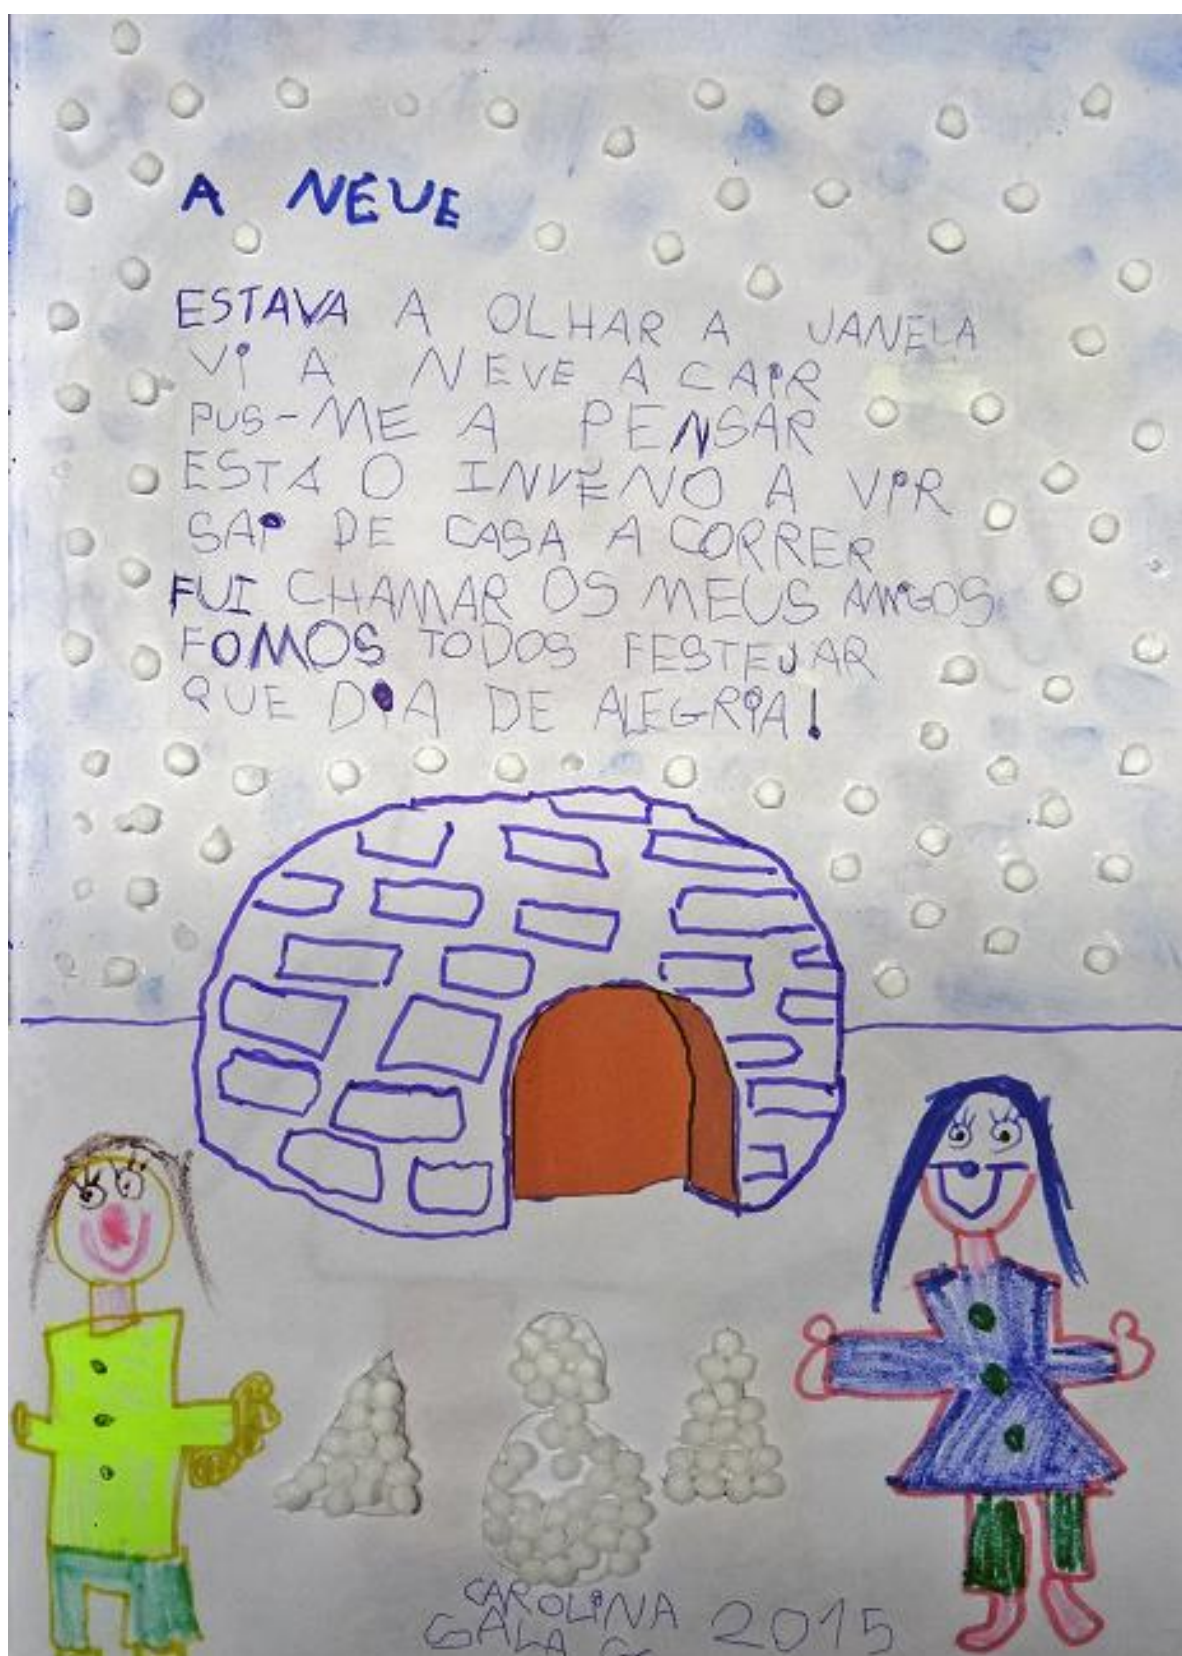 A NEVE
ESTAVA A OLHAR A JANELA
VI A NEVE A CAIR
PUS-ME A PENSAR
ESTA O INVENO A VIR
SAI DE CASA A CORRER
FUI CHAMAR OS MEUS AMIGOS
FOMOS TODOS FESTEJAR
QUE DIA DE ALEGRIA!
CAROLINA
GALA 2015